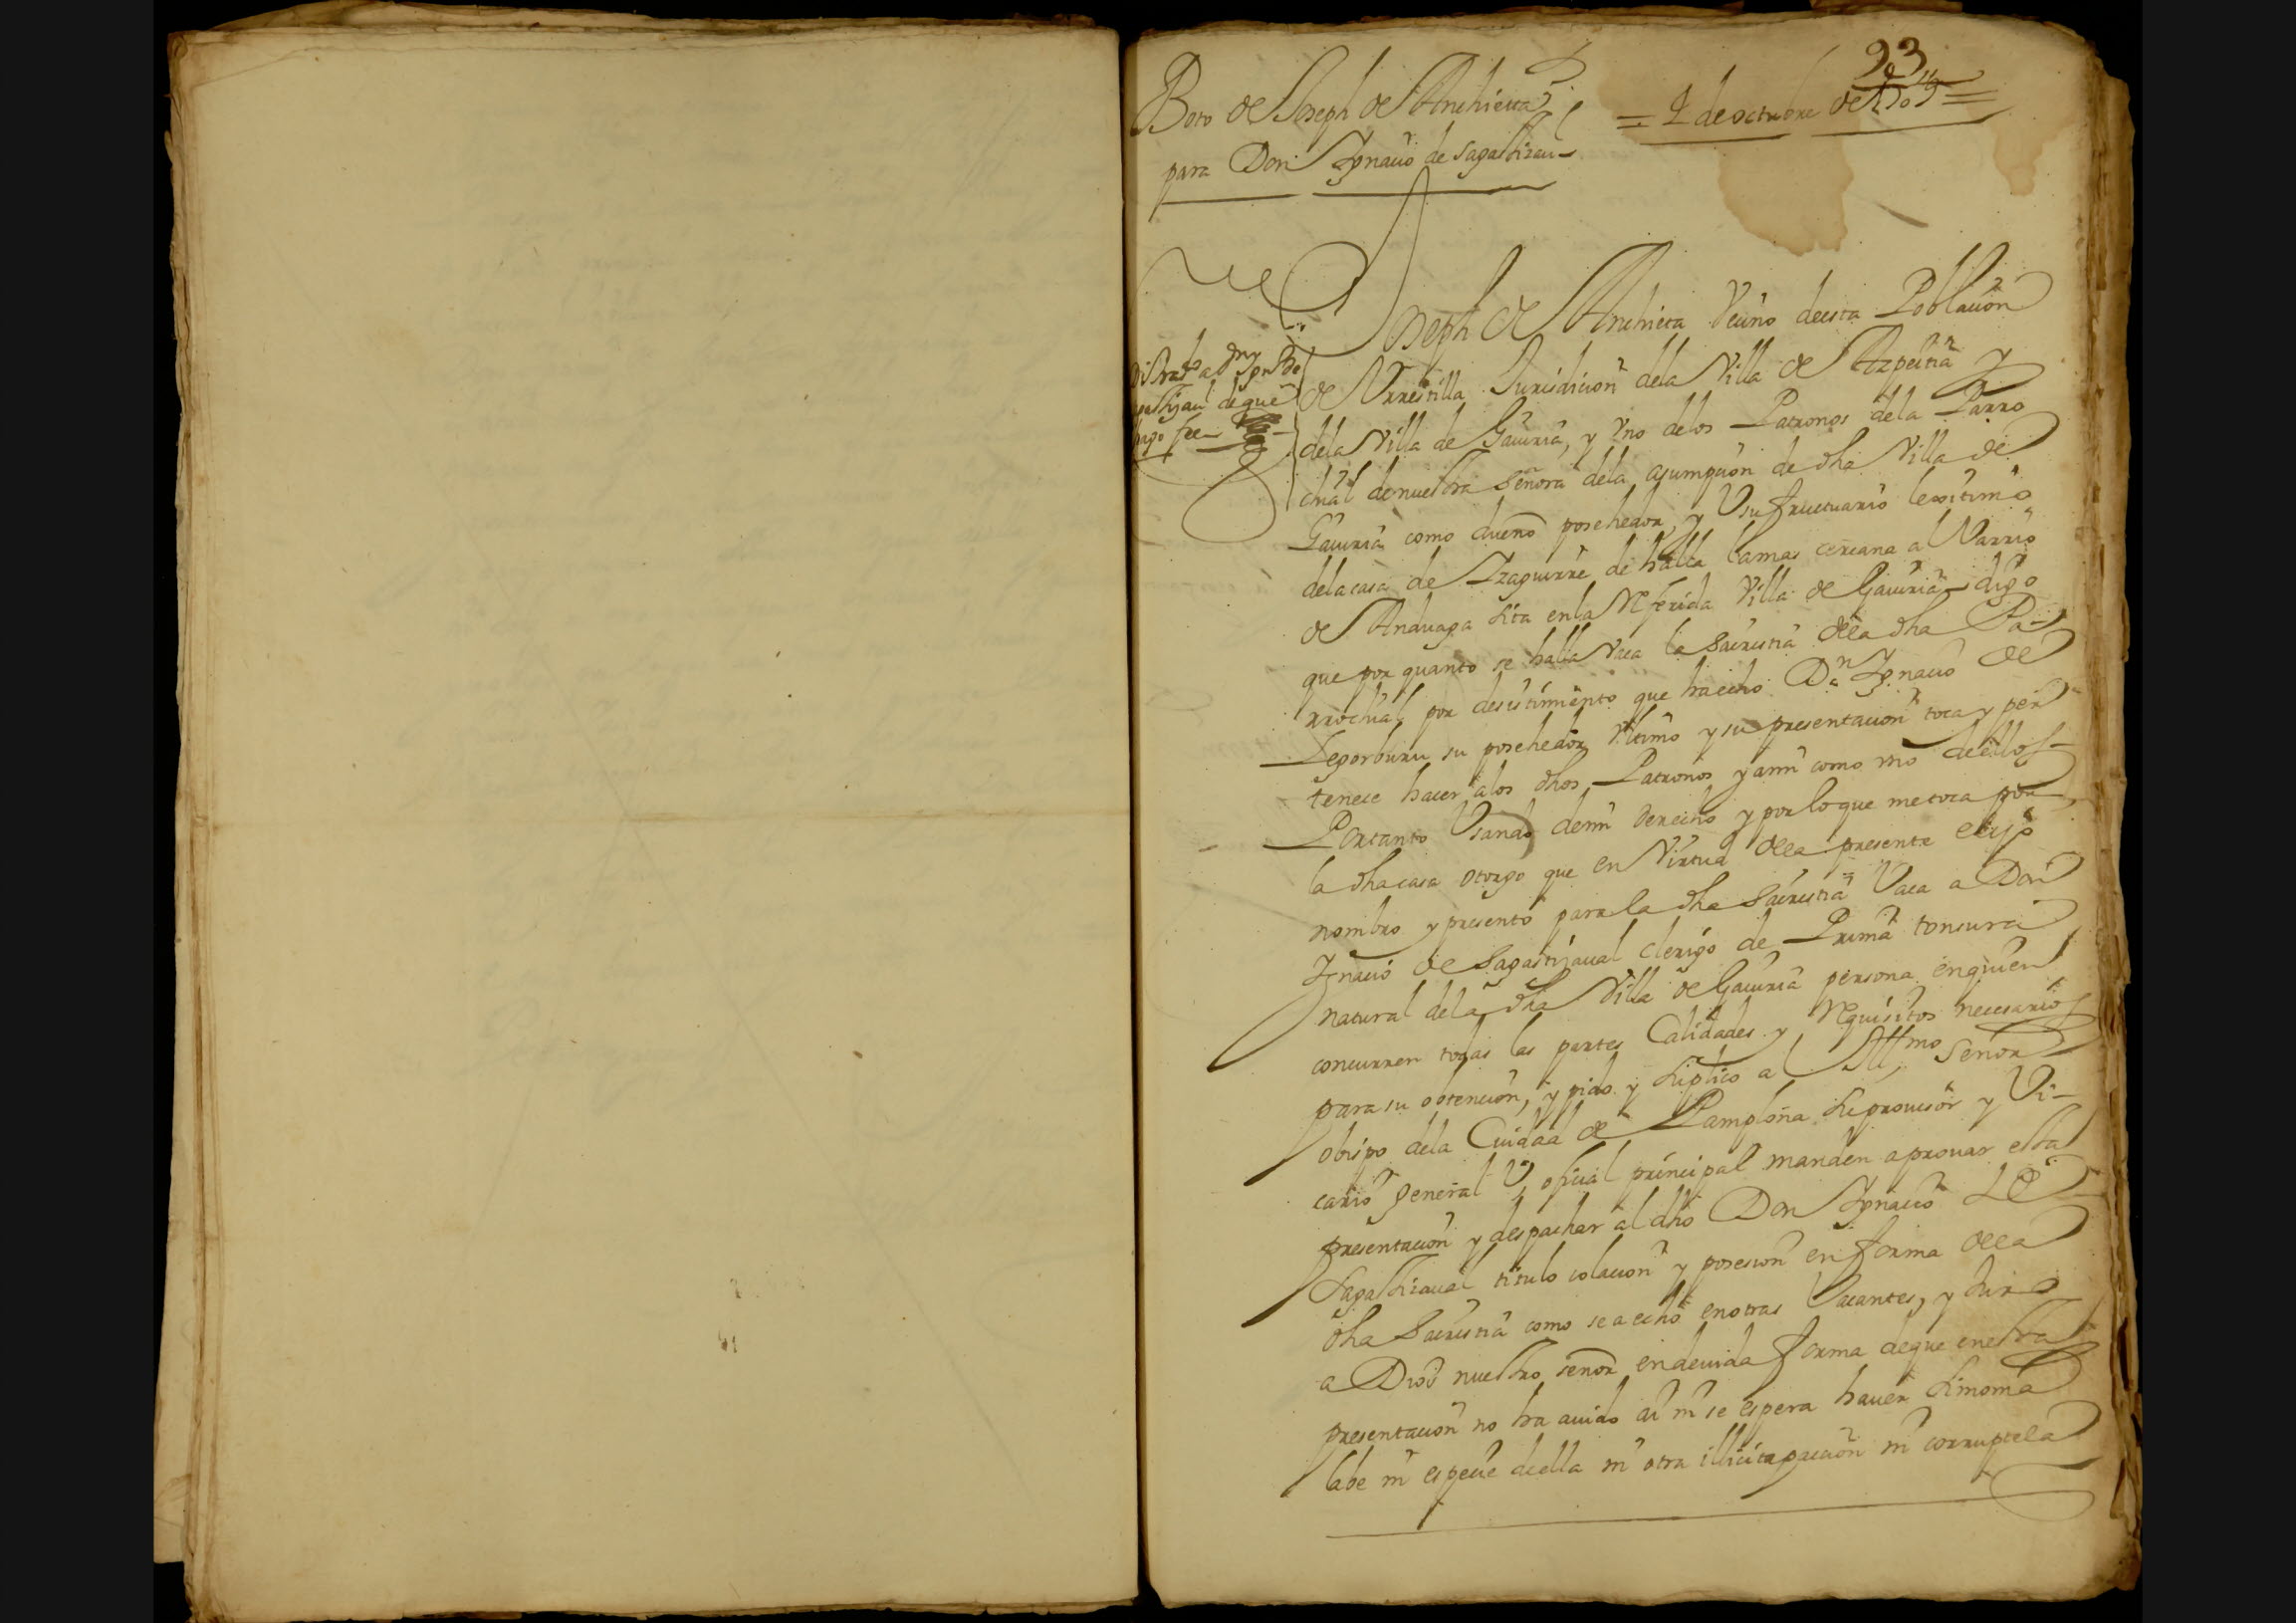 93
Boto de Joseph de Anchieta
para Don Ygnacio de Sagastizau
= 2 de octubre de 1709 =
Joseph de Anchieta Vecino deesta Poblacion
de Vrrestilla Jurisdicion dela Villa de Azpeitia y
dela Villa de Gaviria, y Vno delos Patronos dela Parro
chial denuestra Señora dela asumpcion de dha Villa de
Gaviria como dueño posehedor, y Vsufructuario lexitimo
delacasa de Yzaguirre de halla lamas cercana al Varrio
de Anduaga sita enla Referida Villa de Gaviria digo
que por quanto se halla Vaca la Sacristia dela dha Pa-
rrochial, por desistimiento que haecho Dn Ygnacio de
Legorburu su posehedor Vltimo y su presentacion toca y per
tenece hacer alos dhos Patronos yami como vno deellos
Portanto Vsando demi derecho y por loque metoca por
la dhacasa otorgo que en Virtud dela presente elijo
nombro y presento parala dha Sacristia Vaca a Don
Ygnacio de Sagastizaual clerigo de Prima tonsura
natural dela dha Villa de Gaviria persona enquien
concurren todas las partes Calidades y Requisitos necesarios
para su obtencion, y pido y suplico al Illmo Señor
obispo dela Ciudad de Pamplona suprouisor y Vi-
cario general V oficial principal manden aprouar esta
presentacion y despachar al dho Don Ygnacio de
Sagastizaual titulo colacion y posesion en forma dela
dha Sacristia como se a echo enotras Vacantes, y Juro
a Dios nuestro señor endeuida forma deque enesta
presentacion no ha auido ai ni se espera hauer simonia
labe ni especie deella ni otra illicita paccion ni corruptela
Di traslado a Dn Ygn de
Sagastizaual deque
hago fee